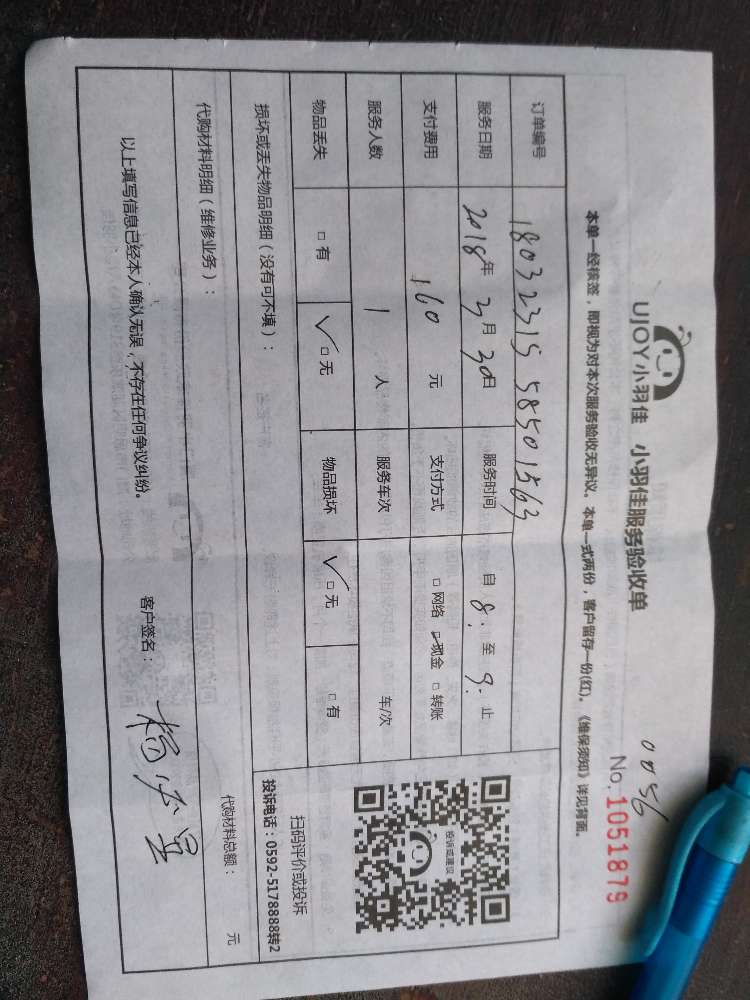 UJOY小羽佳 小羽佳服务验收单
0056
No. 1051879
本单一经核签，即视为对本次服务验收无异议。本单一式两份，客户留存一份(红)。《维保须知》详见背面。
订单编号 18032315 58501563
服务日期 2018年 3月 30日 服务时间 自 8: 至 9: 止
支付费用 160 元 支付方式 □网络 ☑现金 □转账
服务人数 1 人 服务车次 车/次
物品丢失 □有 ✓□无 物品损坏 ✓□无 □有
投诉或建议
扫码评价或投诉
投诉电话：0592-5178888转2
损坏或丢失物品明细（没有可不填）：
代购材料明细（维修业务）：
代购材料总额： 元
以上填写信息已经本人确认无误，不存在任何争议纠纷。 客户签名：